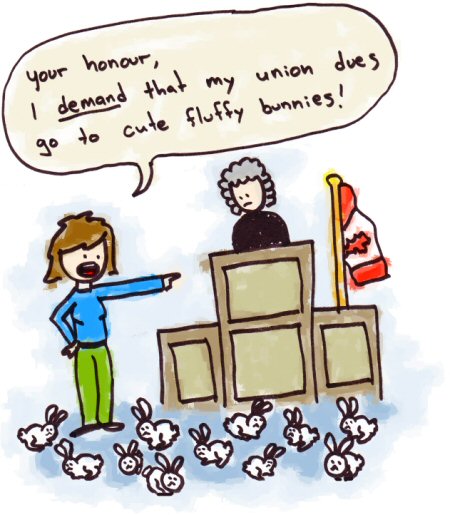 your honour,
I demand that my union dues
go to cute fluffy bunnies!